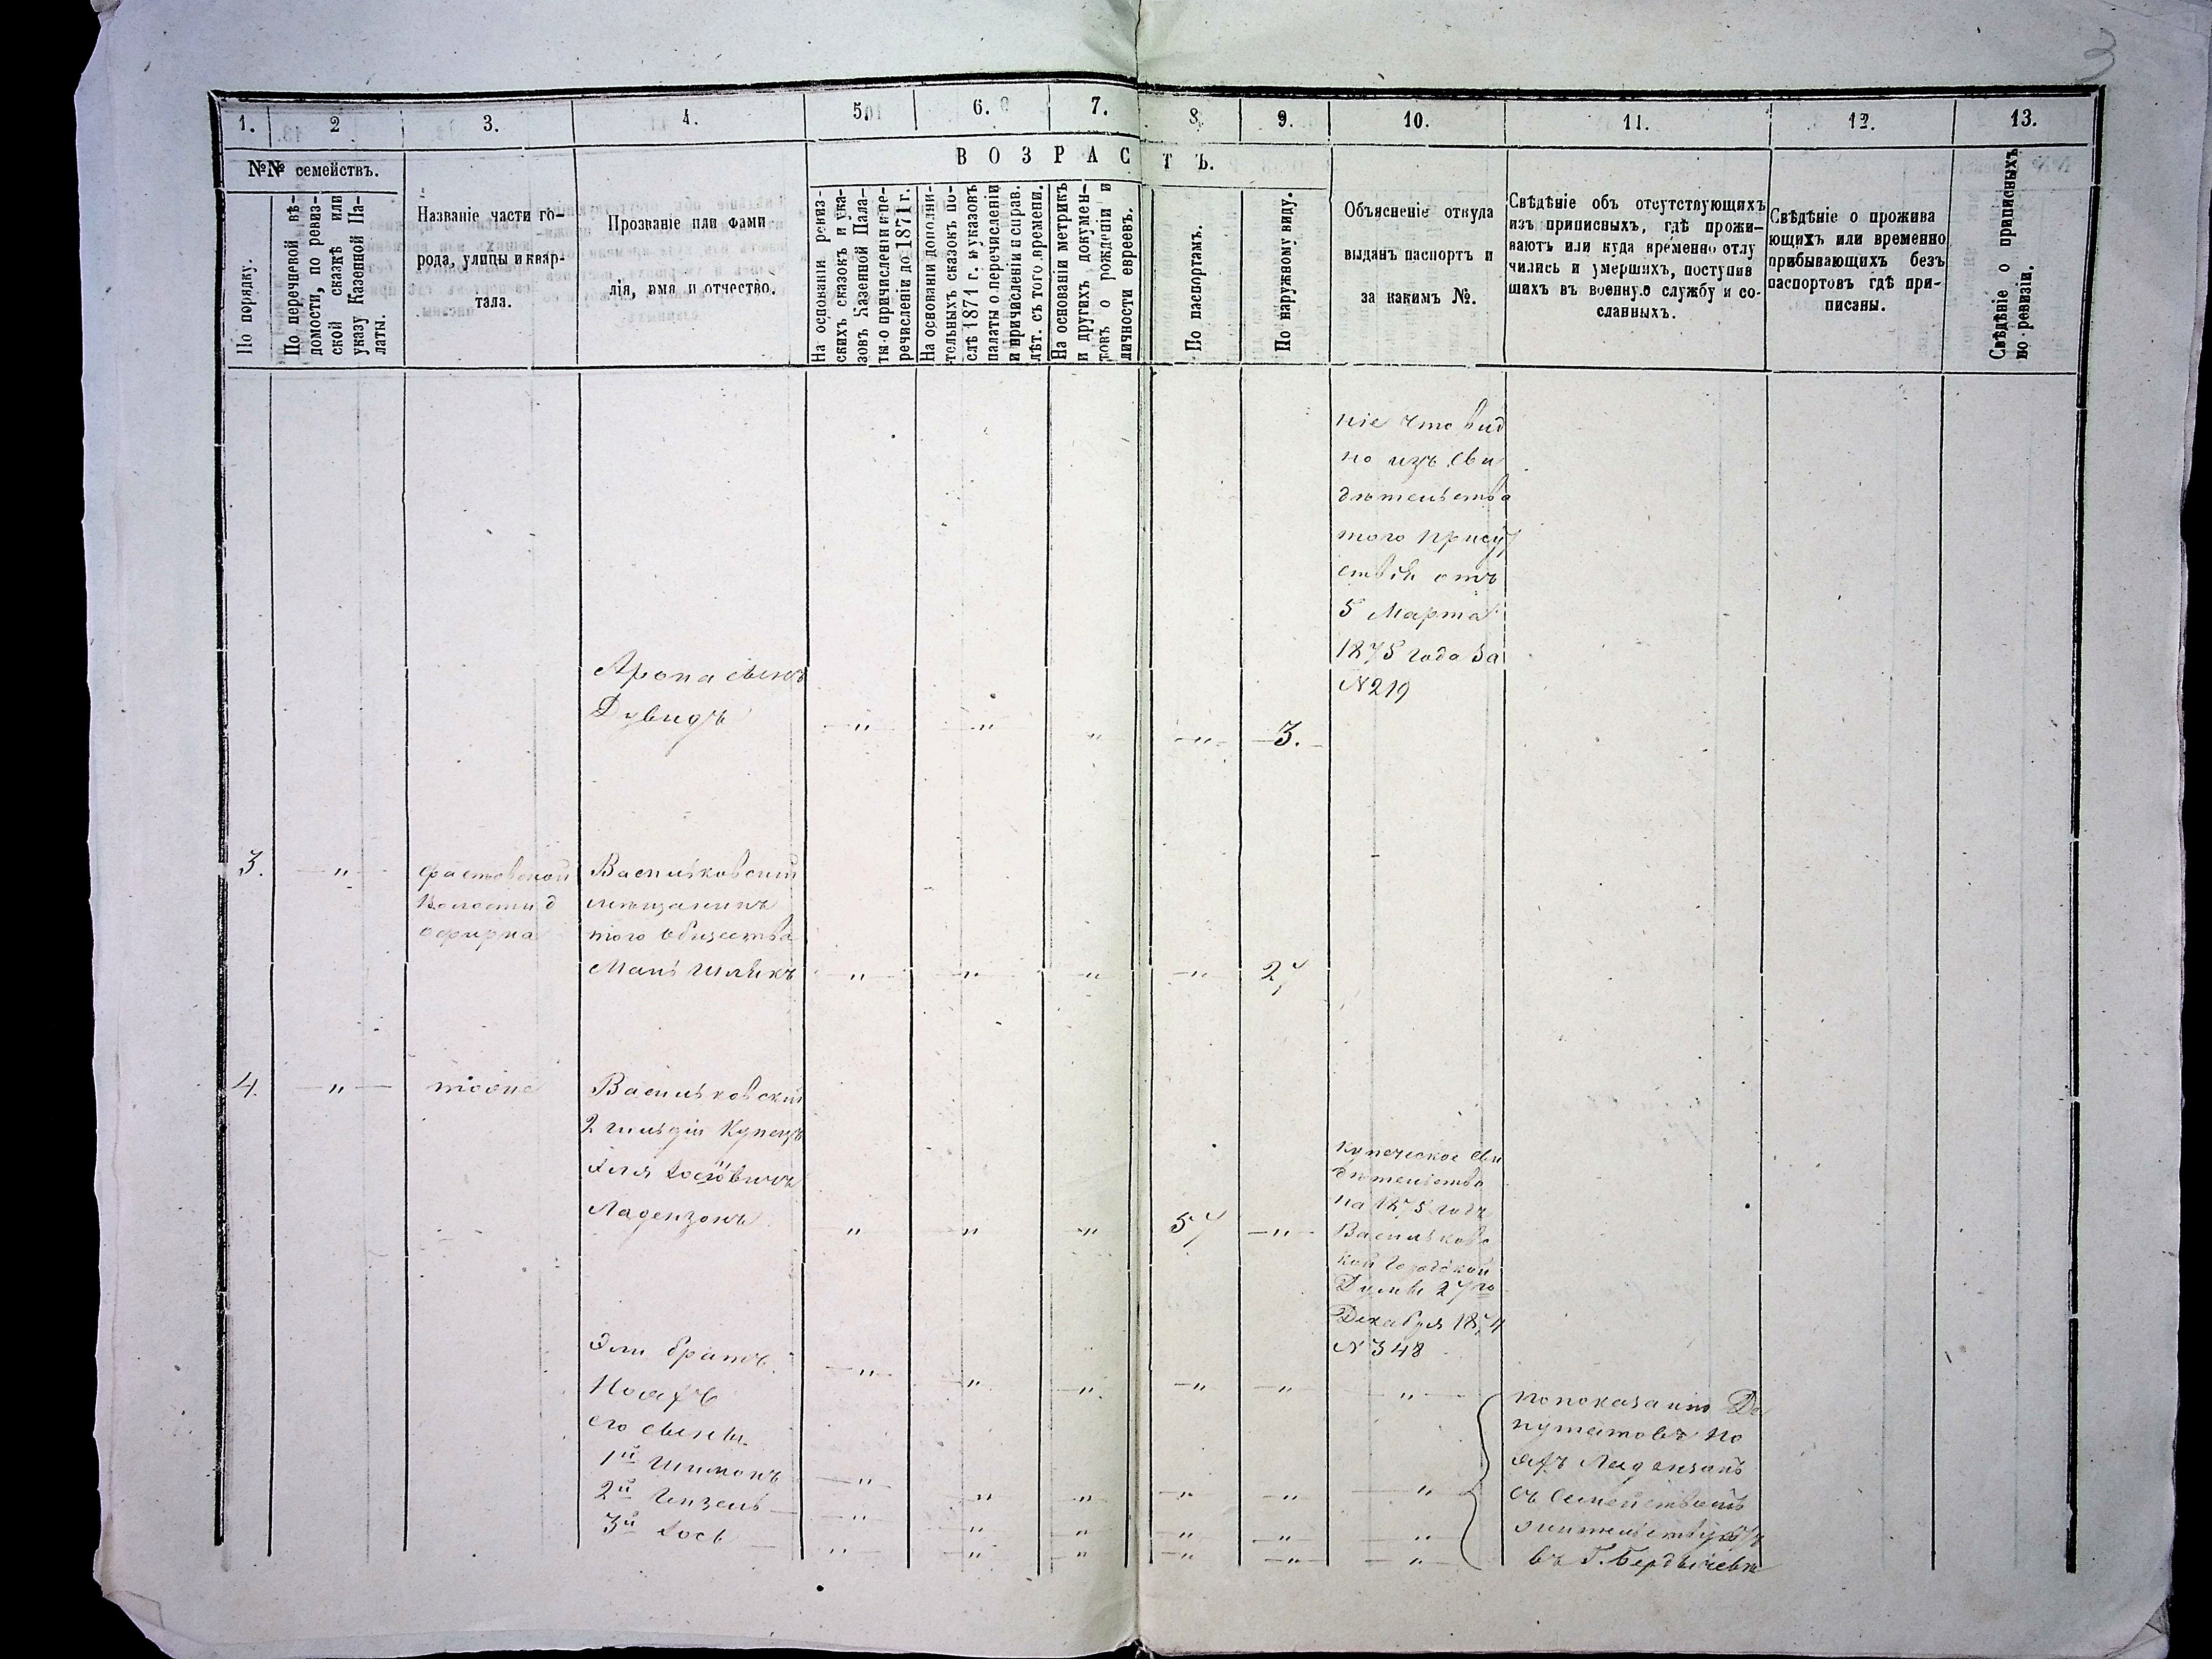 3
1. 2 3. 4. 5. 6. 7. 8. 9. 10. 11. 12. 13.
№№ семействъ.
По порядку.
По перечневой вѣ-
домости, по ревиз-
ской сказкѣ или
указу Казенной Па-
латы.
Названіе части го-
рода, улицы и квар-
тала.
Прозваніе или фами
лія, имя и отчество.
ВОЗРАСТЪ.
На основаніи ревиз-
скихъ сказокъ и ука-
зовъ Казенной Пала-
ты о причисленіи и пе-
речисленіи до 1871 г.
На основаніи дополни-
тельныхъ сказокъ по-
слѣ 1871 г. и указовъ
палаты о перечисленіи
и причисленіи и справ.
лѣт. съ того времени.
На основаніи метрикъ
и другихъ докумен-
товъ о рожденіи и
личности евреевъ.
По паспортамъ.
По наружному виду.
Объясненіе откуда
выданъ паспортъ и
за какимъ №.
Свѣдѣніе объ отсутствующихъ
изъ приписныхъ, гдѣ прожи-
ваютъ или куда временно отлу
чились и умершихъ, поступив
шихъ въ военную службу и со-
сланныхъ.
Свѣдѣніе о прожива
ющихъ или временно
прибывающихъ безъ
паспортовъ гдѣ при-
писаны.
Свѣдѣніе о приписныхъ
по ревизіи.
ніе что вид
но изъ сви
дѣтельства
того присут
ствія отъ
5 Марта
1875 года за
№219
Арона сынъ
Дувидъ — „ — — „ — „ — „ — 3.
3. — „ — Фастовской
Волости д
Офирна
Васильковскій
мѣщанинъ
того общества
Мань Шликъ — „ — — „ — — „ — — „ — 27
4. — „ — тоже
Васильковскій
2 гильдіи Купецъ
Еля Іосіовичъ
Ладензонъ „ „ „ 57 — „ —
купеческое сви
дѣтельство
на 1875 годъ
Васильковс
кой Городской
Думы 27го
Декабря 1874
№348
Эли братъ
Ноафъ
его сыны
1й Шимонъ
2й Гензель
3й Іось
по показанію Де
путатовъ Но
афъ Ладензонъ
съ семействомъ
жительствуютъ
въ Г. Бердычевѣ